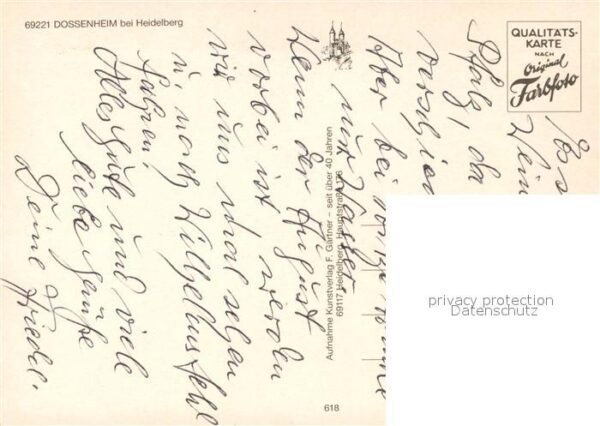 69221 DOSSENHEIM bei Heidelberg
QUALITÄTS-
KARTE
NACH
Original
Farbfoto
Aufnahme Kunstverlag F. Gärtner – seit über 40 Jahren
69117 Heidelberg, Hauptstraße 176
618
privacy protection
Datenschutz
Es s
Wein
Pfalz, da
Aber bei
nur Wasser
Wenn der August
vorbei ist, werden
wir uns mal sehen
u. nach
fahren.
Alles Gute und viele
liebe Grüße
Deine Friedel.